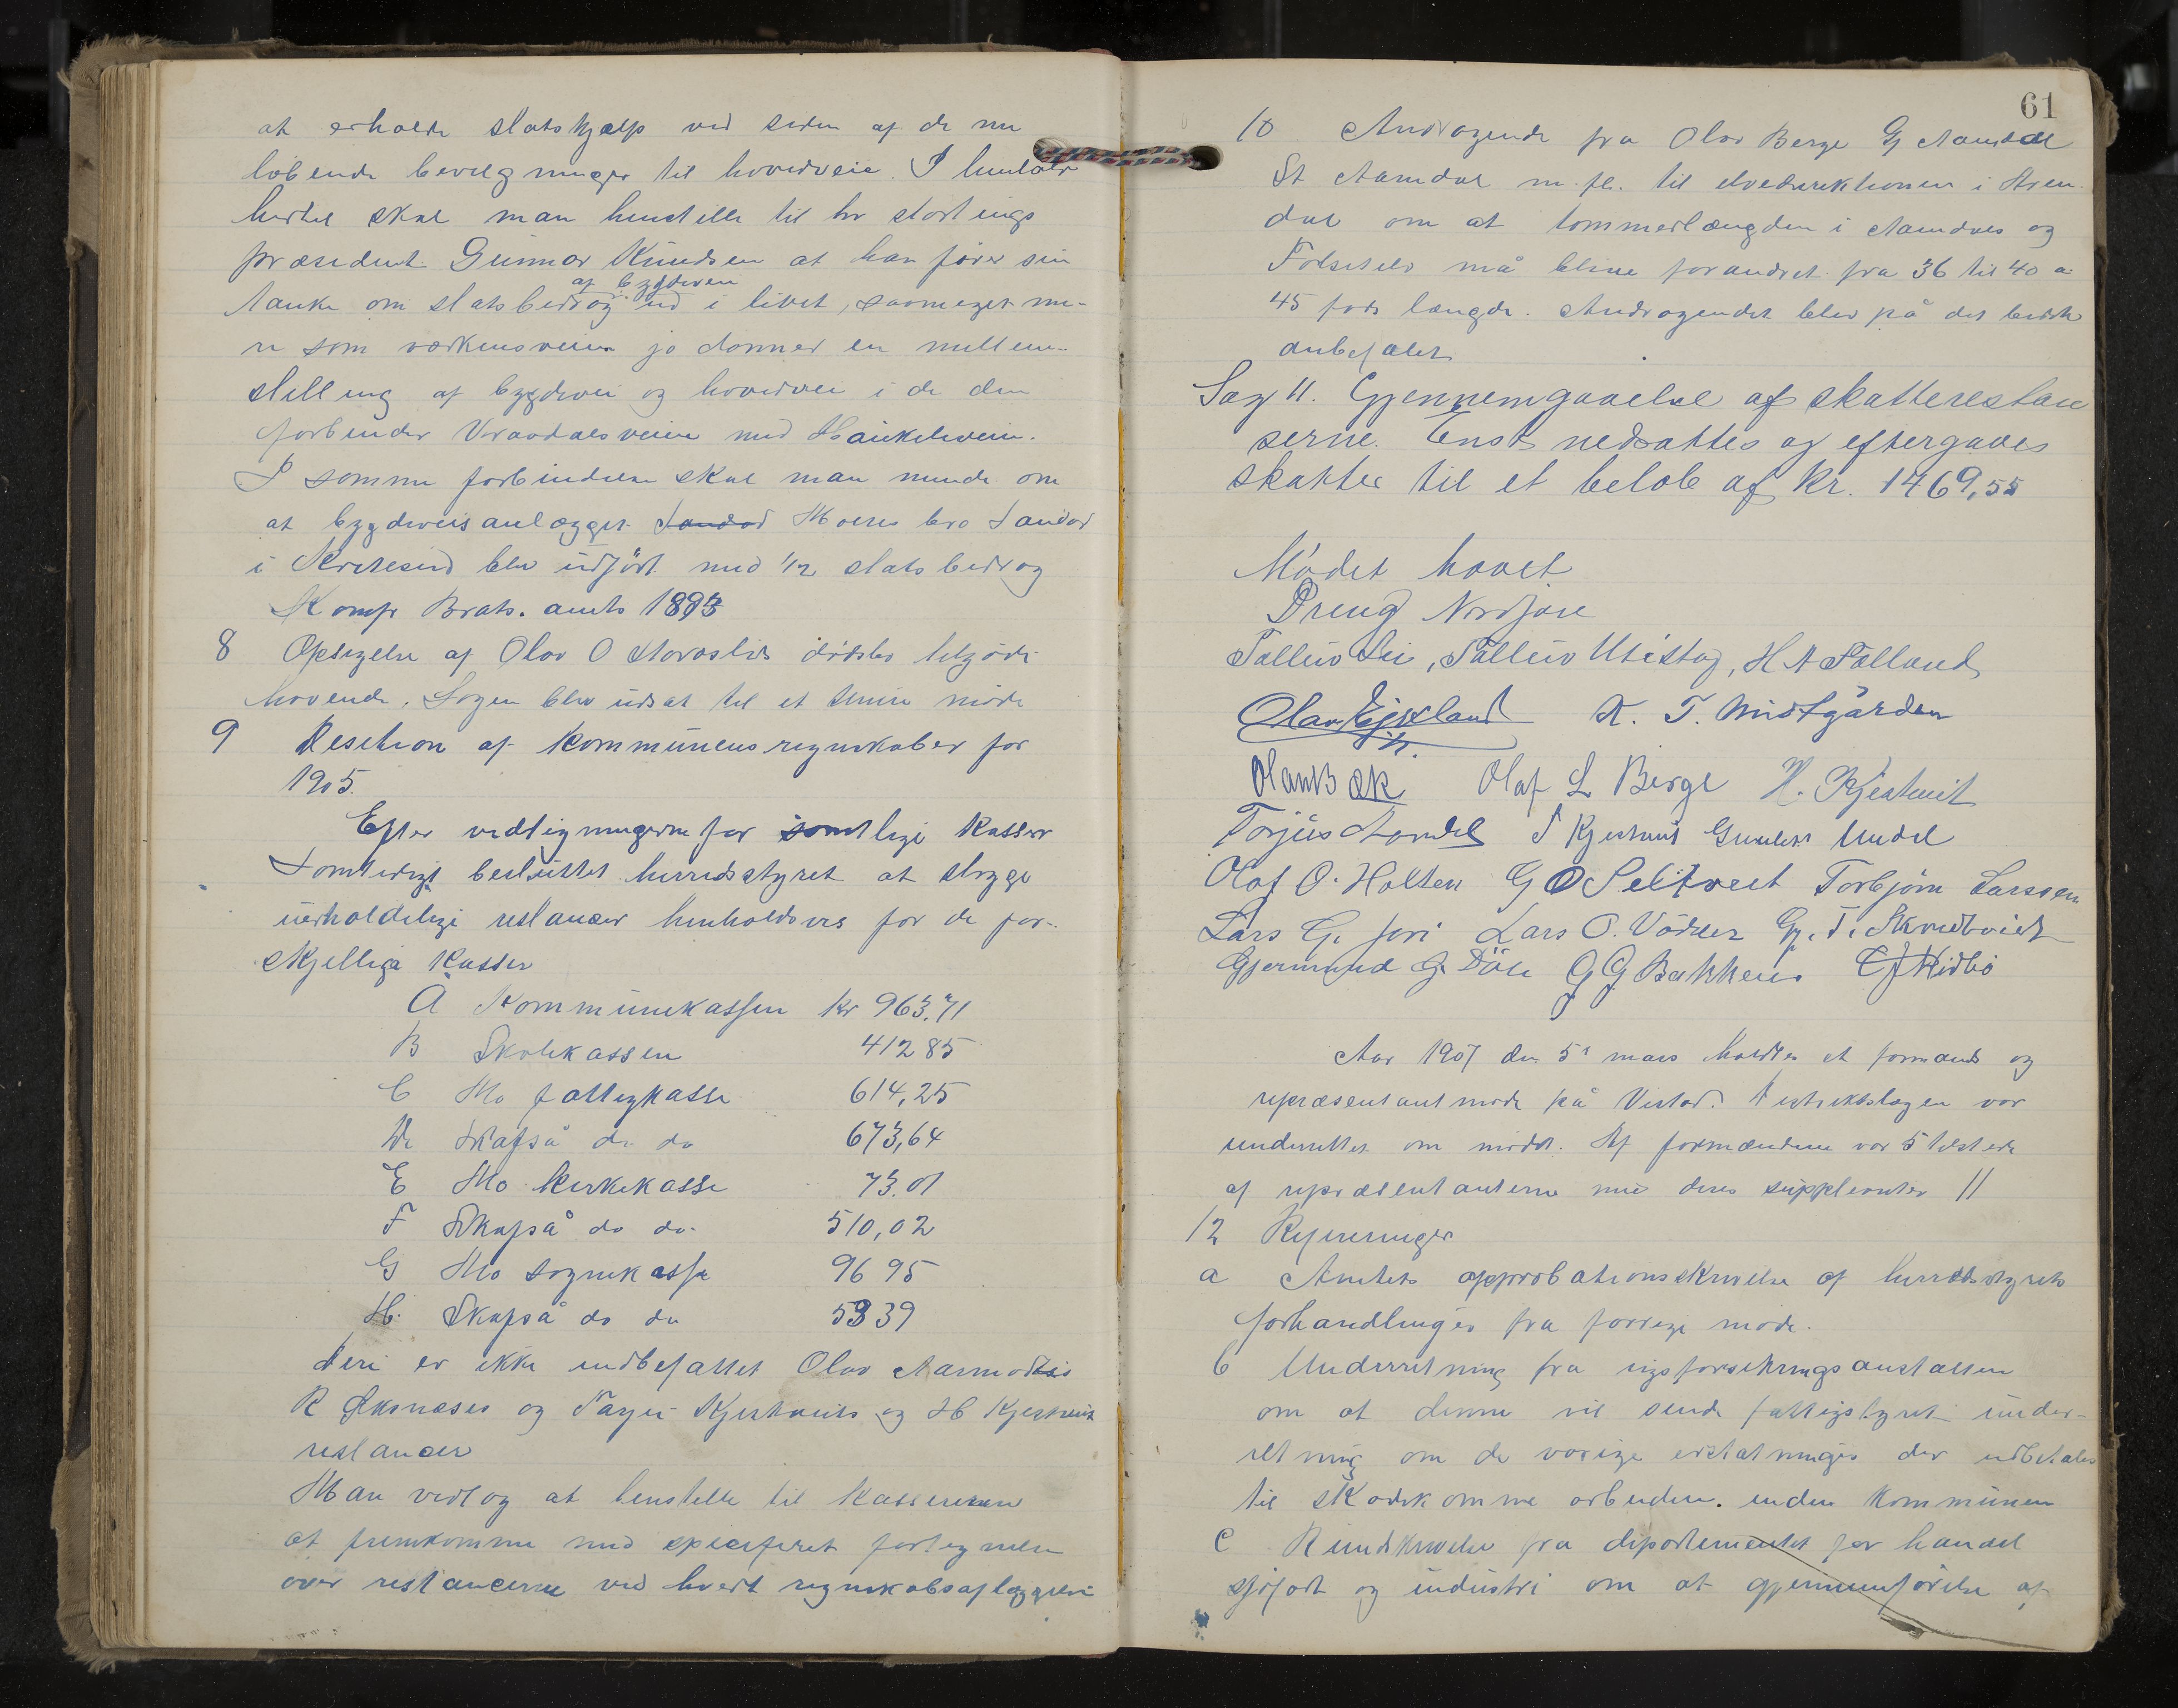 at erholde statshjælp ved siden af de nu
løbende bevilgninger til hovedveie. I henhold
hertil skal man henstille til hr stortings
præsident Gunnar Knudsen at han fører sin
tanke om statsbedrag af bygdeveie ud i livet, saameget me-
re som verkensveien jo danner en mellem-
stilling af bygdevei og hovedvei i de den
forbinder Vraadalsveien med Haukeliveien.
I samme forbindelse skal man minde om
at bygdeveisanlægget Moens bro Sandod
i Kviteseid blev udført med 1/2 statsbedrag
Komfr Brats. amts 1893
8 Opsigelse af Olav O dødsbo tilgode
havende. Sagen blev udsat til et senere møde
9 Desition af kommunens regnskaber for
1905.
Efter vedtegningerne for samtlige kasser
Samtidigt besluttet herredsstyret at stryge
uerholdelige restancer henholdsvis for de for-
skjellige kasser
A Kommunekassen kr 963.71
B Skolekassen 412 85
C Mo fattigkasse 614,25
D Skafså do do 673,64
E Mo kirkekasse 73.01
F Skafså do do 510,02
G Mo sognekasse 96 95
H. Skafså do do 59 39
deri er ikke indbefattet Olav Aamodts
R Øksnæses og Tarjei Kjestveits og H Kjestveit
restancer
Man vedtog at henstille til kassereren
at fremkomme med specificeret fortegnelse
over restancerne ved hvert regnskabsaflæggelse
61
10 Andragende fra Olav Berge G Aamdal
St Aamdal m.fl. til elvedirektionen i Aren-
dal om at tømmerlængden i Aamdals og
må blive forandret fra 36 til 40 a
45 fods længde. Andragendet blev på det bedste
anbefalet
Sag 11. Gjennemgaaelse af skatterestan
serne. Enst nedsattes og eftergaves
skatter til et beløb af kr. 1469,55
Mødet hævet
Dreng Nordjore
Talleiv Lii, Talleiv Utistog, H A Følland
Olav Ejkland K. T. Midtgården
Olav Bæk Olaf L Berge H. Kjestveit
Torjus Aamdal T Kjestveit Gunleik Undal
Olaf O. Holten G O Seltveit Torbjørn Larssen
Lars G. Jori Lars O. Vådder G. T. Skredtveit
Gjermund G. G G Bakkene
Aar 1907 den 5te mars holdtes et formands og
repræsentantmøde på Vistad. distriktslægen var
underrettet om mødet. Af formændene var 5 tilstede
af repræsentanterne med deres suppleanter 11
12 Refereringer
a Amtets approbationsskrivelse af herredsstyrets
forhandlinger fra forrige møde.
b Underretning fra rigsforsikringsanstalten
om at denne vil sende fattigstyret under-
retning om de varige erstatninger der udbetales
til skadekomne arbeidere inden kommunen
c Rundskrivelse fra departementet for handel
sjøfart og industri om at gjennemførelse af